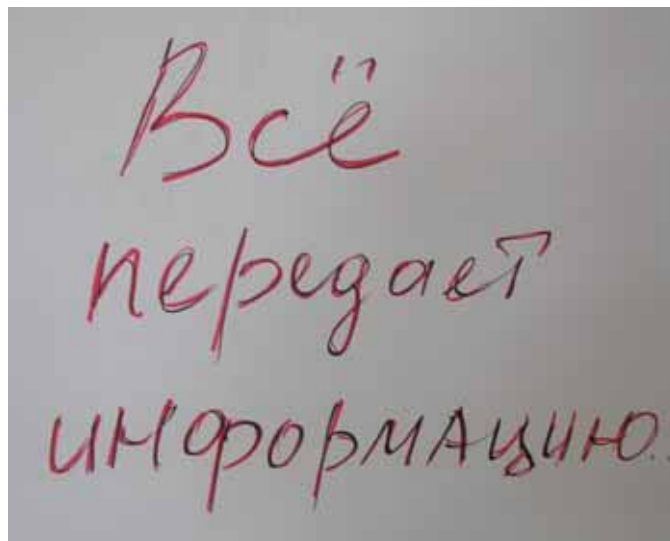 Всё
передает
информацию..